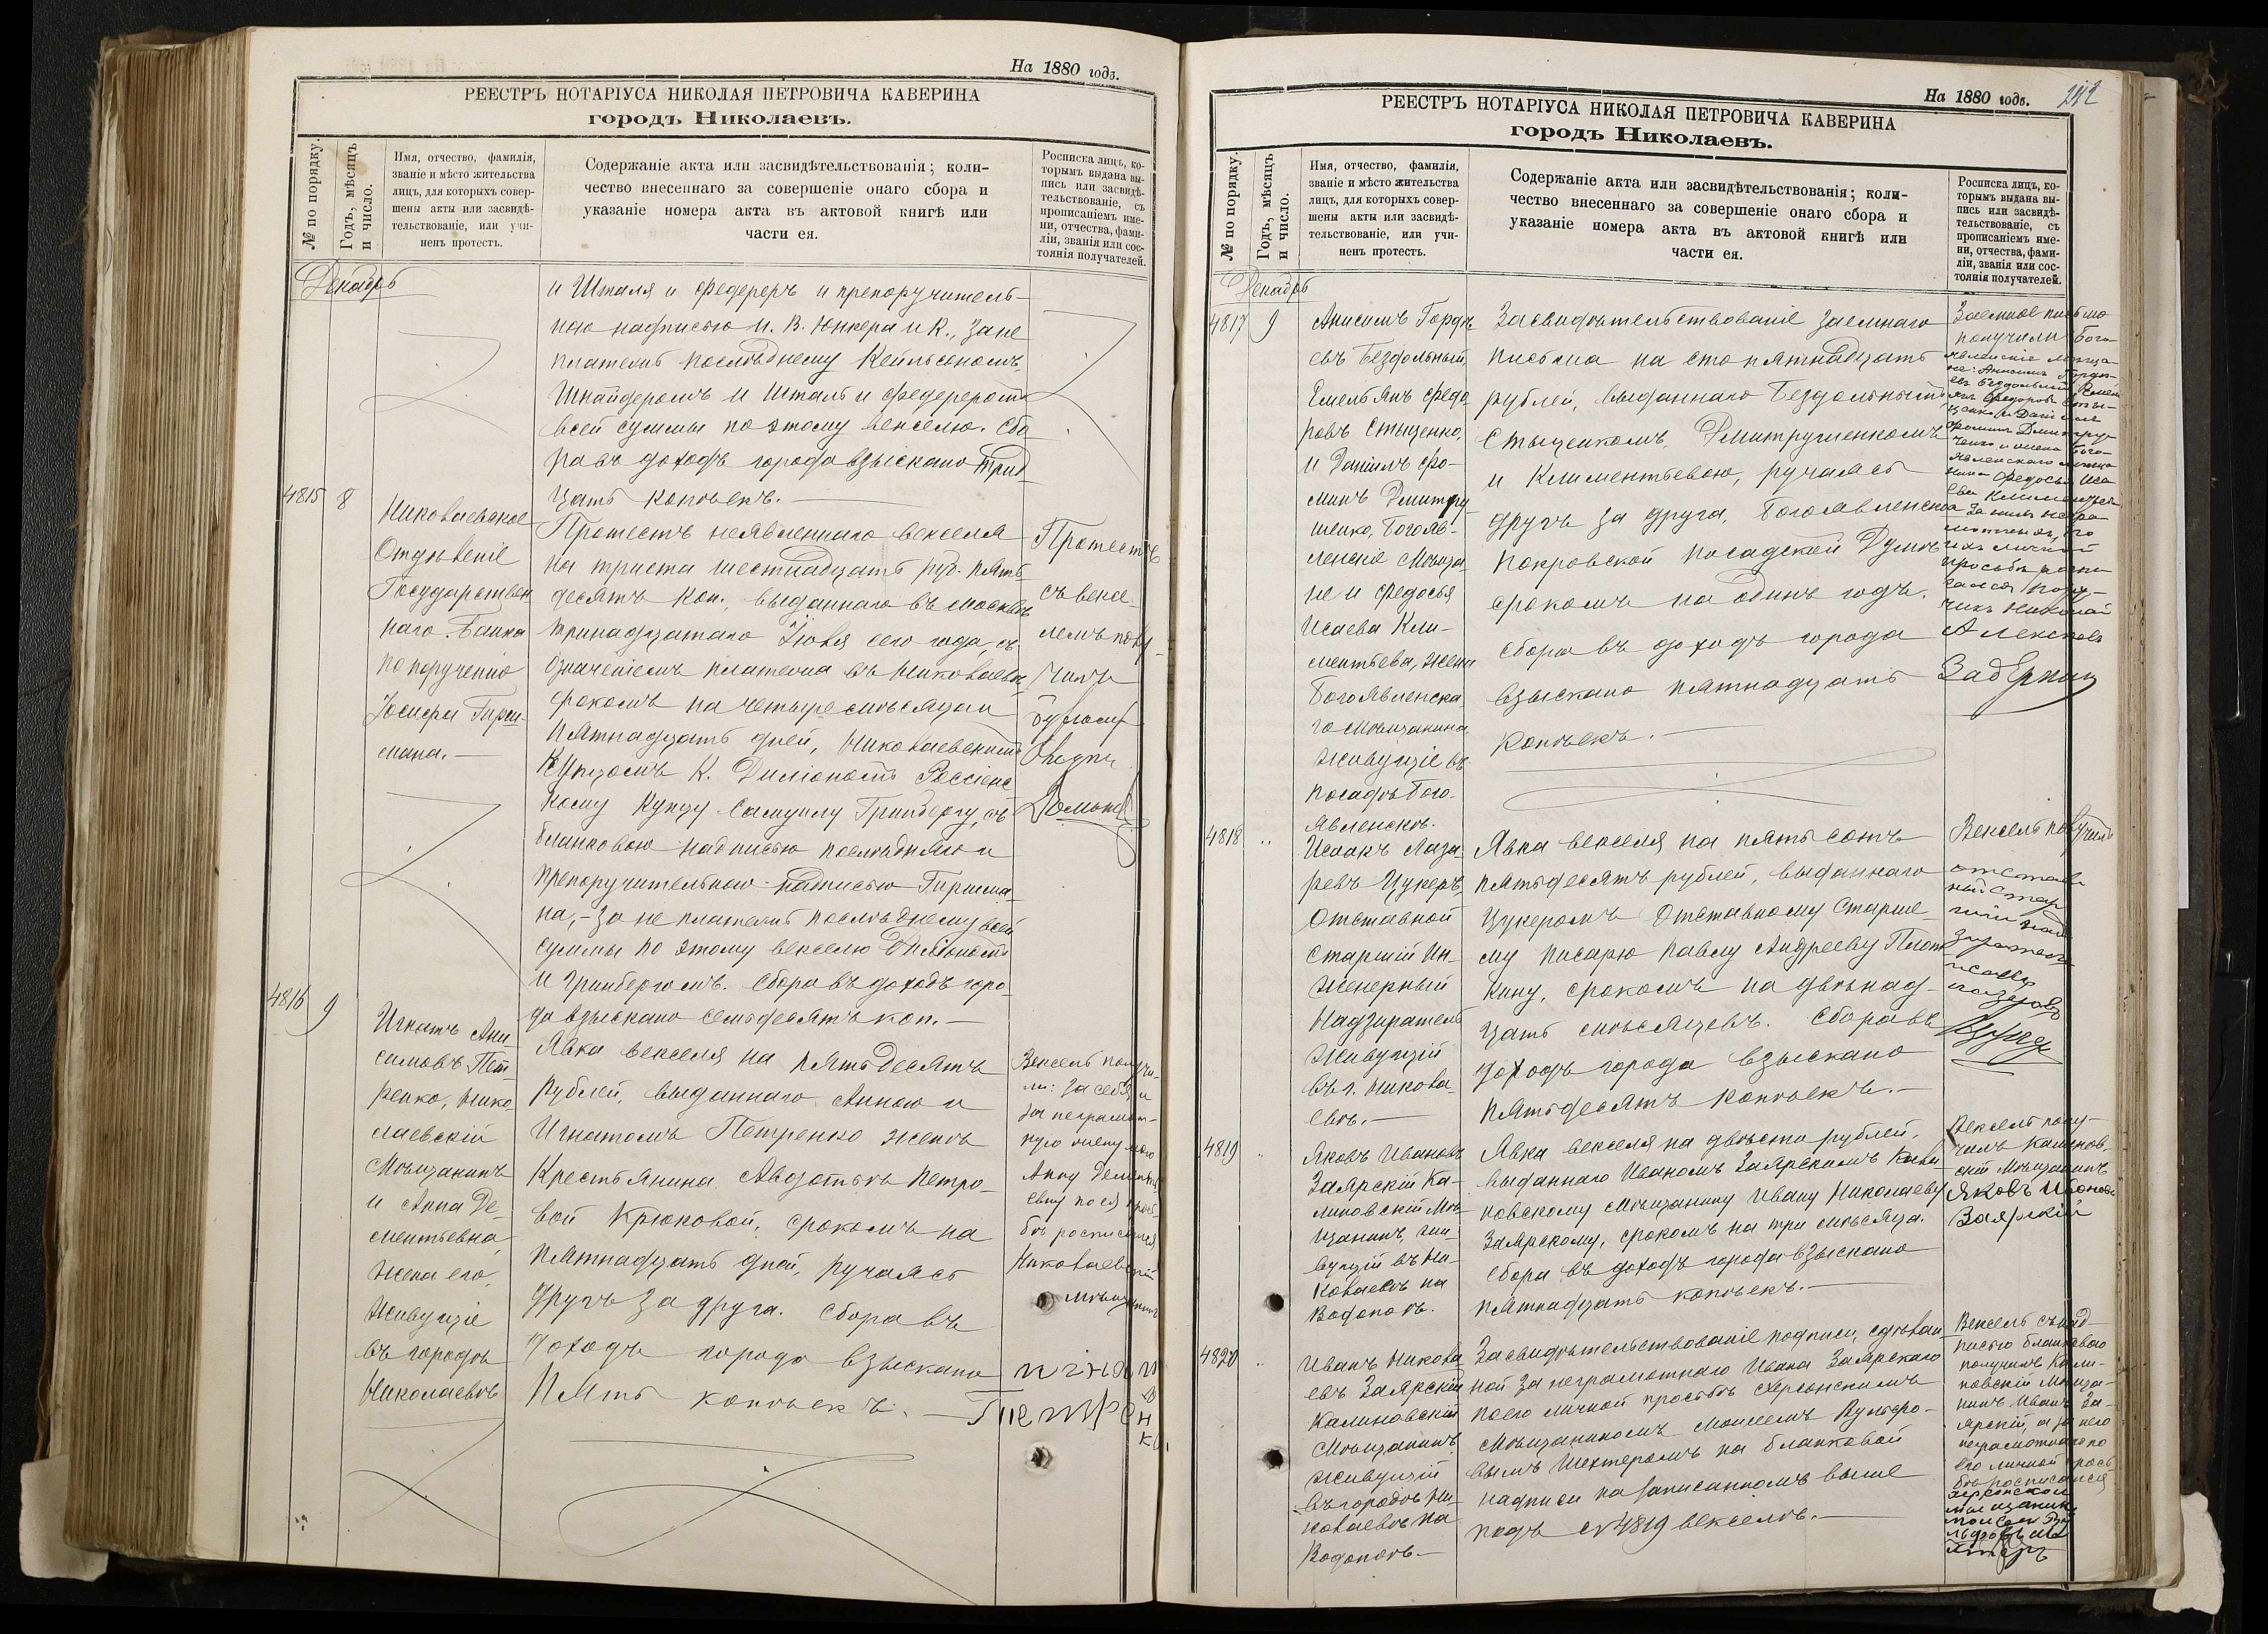 На 1880 годъ.
РЕЕСТРЪ НОТАРІУСА НИКОЛАЯ ПЕТРОВИЧА КАВЕРИНА
городъ Николаевъ.
№ по порядку.
Годъ, мѣсяцъ
и число.
Имя, отчество, фамилія,
званіе и мѣсто жительства
лицъ, для которыхъ совер-
шены акты или засвидѣ-
тельствованіе, или учи-
ненъ протестъ.
Содержаніе акта или засвидѣтельствованія; коли-
чество внесеннаго за совершеніе онаго сбора и
указаніе номера акта въ актовой книгѣ или
части ея.
Росписка лицъ, ко-
торымъ выдана вы-
пись или засвидѣ-
тельствованіе, съ
прописаніемъ име-
ни, отчества, фами-
ліи, званія или сос-
тоянія получателей.
Декабрь
и Шталя и Федереръ и препоручитель-
ною надписью И. В. Юнкера и К., за не
платежъ послѣднему Кейльсономъ,
Шнайдеромъ и Шталь и Федереромъ
всей суммы по этому векселю. Сбо
ра въ доходъ города взыскано трид
цать копѣекъ.
4815
8
Николаевское
Отдѣленіе
Государствен
наго Банка
по порученію
Іосифа Гирш-
мана.
Протестъ неявленнаго векселя
на триста шестнадцать руб. пять
десятъ коп., выданнаго въ Москвѣ
тринадцатаго Іюля сего года, съ
означеніемъ платежа въ Николаевѣ,
срокомъ на четыре мѣсяца и
пятнадцать дней, Николаевскимъ
Купцомъ К. Диліономъ Россіенс
кому Купцу Самуилу Гринбергу, съ
бланковою надписью послѣдняго и
препоручительною надписью Гиршма
на, - за не платежъ послѣднему всей
суммы по этому векселю Диліономъ
и Гринбергомъ. Сбора въ доходъ горо-
да взыскано семьдесятъ коп.
Протестъ
съ вексе-
лемъ полу-
чилъ
4816
9
Игнатъ Ани-
симовъ Пет
ренко, Нико
лаевскій
Мѣщанинъ
и Анна Де-
ментьевна,
жена его,
живущіе
въ городѣ
Николаевѣ
Явка векселя на пятьдесятъ
рублей, выданнаго Анною и
Игнатомъ Петренко женѣ
Крестьянина Авдотьѣ Петро-
вой Крюковой, срокомъ на
пятнадцать дней, ручаясь
другъ за друга. Сбора въ
доходъ города взыскано
пять копѣекъ.
Вексель получи-
ли: за себя и
за неграмот-
ную жену мою
Анну Демент
евну по ея прось-
бѣ росписался
Николаевскій
мѣщанинъ
На 1880 годъ.
242
РЕЕСТРЪ НОТАРІУСА НИКОЛАЯ ПЕТРОВИЧА КАВЕРИНА
городъ Николаевъ.
№ по порядку.
Годъ, мѣсяцъ
и число.
Имя, отчество, фамилія,
званіе и мѣсто жительства
лицъ, для которыхъ совер-
шены акты или засвидѣ-
тельствованіе, или учи-
ненъ протестъ.
Содержаніе акта или засвидѣтельствованія; коли-
чество внесеннаго за совершеніе онаго сбора и
указаніе номера акта въ актовой книгѣ или
части ея.
Росписка лицъ, ко-
торымъ выдана вы-
пись или засвидѣ-
тельствованіе, съ
прописаніемъ име-
ни, отчества, фами-
ліи, званія или сос-
тоянія получателей.
Декабрь
4817
9
Анисимъ Горде
евъ Бездольный,
Емельянъ Федо
ровъ Стыценко,
и Даніилъ Фо-
минъ Дмитру
шенко, Богояв-
ленскіе Мѣща-
не и Федосья
Исаева Кли-
ментьева, жена
Богоявленска
го Мѣщанина,
живущіе въ
посадѣ Бого-
явленскѣ.
Засвидѣтельствованіе заемнаго
письма на сто пятнадцать
рублей, выданнаго Бездольнымъ,
Стыценкомъ, Дмитрушенкомъ
и Климентьевою, ручаясь
другъ за друга, Богоявленско
Покровской посадской Думѣ
срокомъ на одинъ годъ.
Сбора въ доходъ города
взыскано пятнадцать
копѣекъ.
Заемное письмо
получили Бого-
явленскіе мѣща-
не: Анисимъ Горде-
евъ Бездольный, Емель
янъ Федоровъ Сты-
ценко и Даніилъ
Фоминъ Дмитру-
ченко и жена Бого-
явленскаго мѣща
нина Федосья Иса
ева Климентьева
а за нихъ негра-
мотныхъ, по
ихъ личной
просьбѣ роспи
сался
Николай
Алексѣевъ
4818
"
Исаакъ Лаза-
ревъ Цукеръ,
Отставной
Старшій Ин-
женерный
Надзиратель
живущій
въ г. Никола-
евѣ.
Явка векселя на пять сотъ
пятьдесятъ рублей, выданнаго
Цукеромъ Отставному Старше-
му писарю Павлу Андрееву Плот
кину, срокомъ на двѣнад-
цать мѣсяцевъ. Сбора въ
доходъ города взыскано
пятьдесятъ копѣекъ.
Вексель получилъ
отстав
ный стар
шій над
зиратель
Исаакъ
Лазаревъ
Цукер
4819
"
Яковъ Ивановъ
Заярскій Ка-
линовскій Мѣ-
щанинъ, жи-
вущій въ Ни-
колаевѣ на
Водопоѣ.
Явка векселя на двѣсти рублей,
выданнаго Иваномъ Заярскимъ Кали
новскому Мѣщанину Ивану Николаеву
Заярскому, срокомъ на три мѣсяца.
Сбора въ доходъ города взыскано
пятнадцать копѣекъ.
Вексель полу-
чилъ Калинов-
скій Мѣщанинъ
Яковъ Ивановъ
Заярскій
4820
"
Иванъ Никола
евъ Заярскій
Калиновскій
Мѣщанинъ
живущій
въ городѣ Ни-
колаевѣ на
Водопоѣ.
Засвидѣтельствованіе подписи, сдѣлан
ной за неграмотнаго Ивана Заярскаго
по его личной просьбѣ Херсонскимъ
Мѣщаниномъ Моисеемъ Вульфо-
вымъ Шехтеромъ на бланковой
надписи на записанномъ выше
подъ №4819 векселѣ.
Вексель съ над-
писью бланковою
получилъ Кали-
новскій Мѣща-
нинъ Иванъ За-
ярскій, а за него
неграмотнаго по
его личной прось
бѣ росписался
Херсонской
мещанинъ